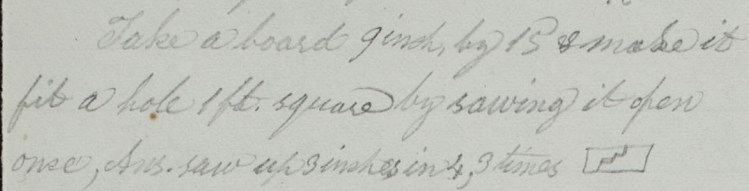 Take a board 9 inch, by 15 & make it
fit a hole 1 ft. square by sawing it open
once, Ans. saw up 3 inches in 4, 3 times